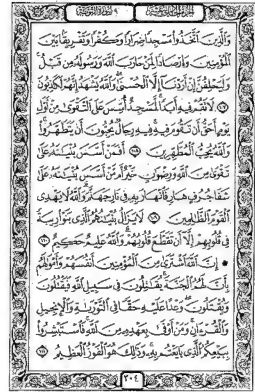 وَالَّذِينَ اتَّخَذُوا مَسْجِدًا ضِرَارًا وَكُفْرًا وَتَفْرِيقًا بَيْنَ
الْمُؤْمِنِينَ وَإِرْصَادًا لِّمَنْ حَارَبَ اللَّهَ وَرَسُولَهُ مِن قَبْلُ
وَلَيَحْلِفُنَّ إِنْ أَرَدْنَا إِلَّا الْحُسْنَىٰ وَاللَّهُ يَشْهَدُ إِنَّهُمْ لَكَاذِبُونَ
١٠٧ لَا تَقُمْ فِيهِ أَبَدًا لَّمَسْجِدٌ أُسِّسَ عَلَى التَّقْوَىٰ مِنْ أَوَّلِ
يَوْمٍ أَحَقُّ أَن تَقُومَ فِيهِ فِيهِ رِجَالٌ يُحِبُّونَ أَن يَتَطَهَّرُوا
وَاللَّهُ يُحِبُّ الْمُطَّهِّرِينَ ١٠٨ أَفَمَنْ أَسَّسَ بُنْيَانَهُ عَلَىٰ
تَقْوَىٰ مِنَ اللَّهِ وَرِضْوَانٍ خَيْرٌ أَم مَّنْ أَسَّسَ بُنْيَانَهُ عَلَىٰ
شَفَا جُرُفٍ هَارٍ فَانْهَارَ بِهِ فِي نَارِ جَهَنَّمَ وَاللَّهُ لَا يَهْدِي
الْقَوْمَ الظَّالِمِينَ ١٠٩ لَا يَزَالُ بُنْيَانُهُمُ الَّذِي بَنَوْا رِيبَةً
فِي قُلُوبِهِمْ إِلَّا أَن تَقَطَّعَ قُلُوبُهُمْ وَاللَّهُ عَلِيمٌ حَكِيمٌ ١١٠
۞ إِنَّ اللَّهَ اشْتَرَىٰ مِنَ الْمُؤْمِنِينَ أَنفُسَهُمْ وَأَمْوَالَهُم
بِأَنَّ لَهُمُ الْجَنَّةَ يُقَاتِلُونَ فِي سَبِيلِ اللَّهِ فَيَقْتُلُونَ
وَيُقْتَلُونَ وَعْدًا عَلَيْهِ حَقًّا فِي التَّوْرَاةِ وَالْإِنجِيلِ
وَالْقُرْآنِ وَمَنْ أَوْفَىٰ بِعَهْدِهِ مِنَ اللَّهِ فَاسْتَبْشِرُوا
بِبَيْعِكُمُ الَّذِي بَايَعْتُم بِهِ وَذَٰلِكَ هُوَ الْفَوْزُ الْعَظِيمُ ١١١
٢٠٤